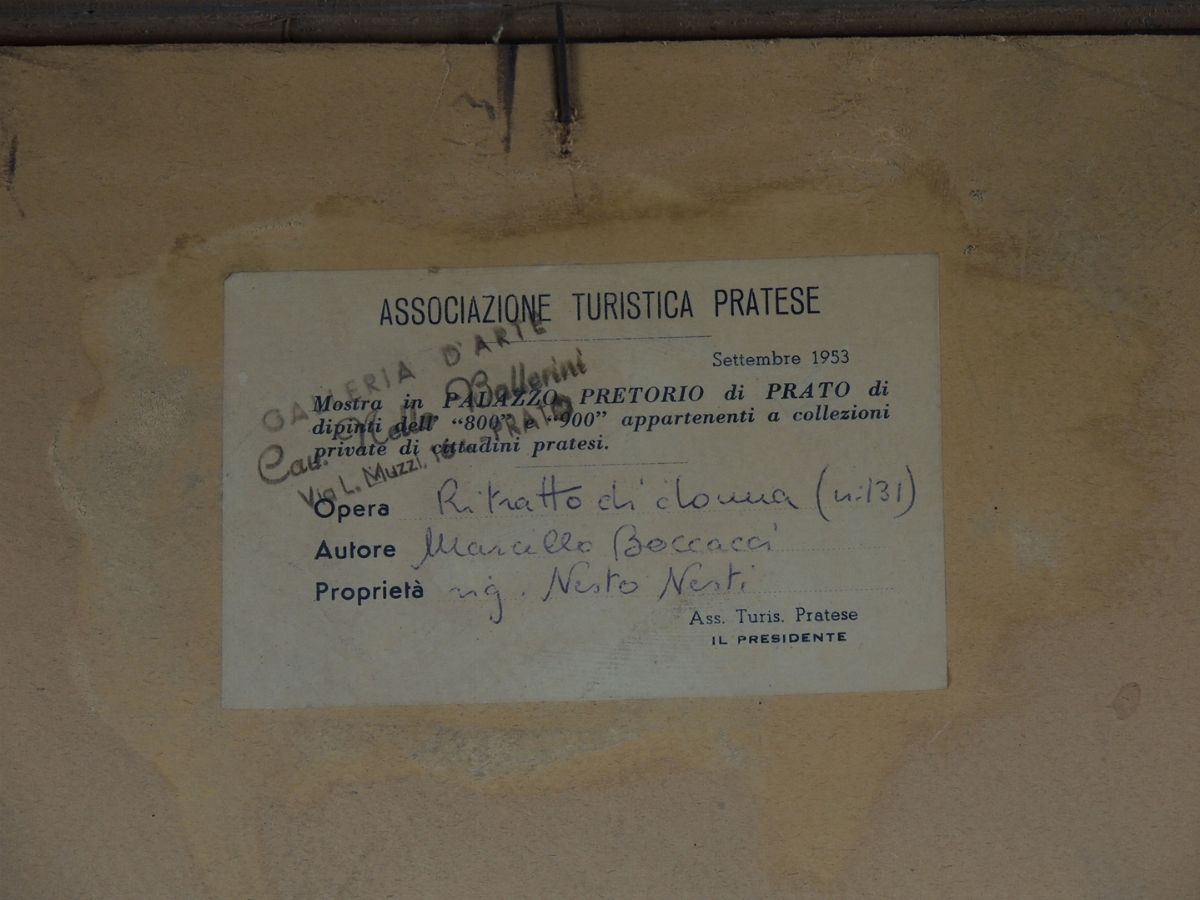 ASSOCIAZIONE TURISTICA PRATESE
Settembre 1953
GALLERIA D'ARTE
Cav. Nello Ballerini
Via L. Muzzi, - PRATO
Mostra in PALAZZO PRETORIO di PRATO di
dipinti dell' "800" e "900" appartenenti a collezioni
private di cittadini pratesi.
Opera Ritratto di donna (n. 131)
Autore Marcello Boccacci
Proprietà sig. Nesto Nesti
Ass. Turis. Pratese
IL PRESIDENTE